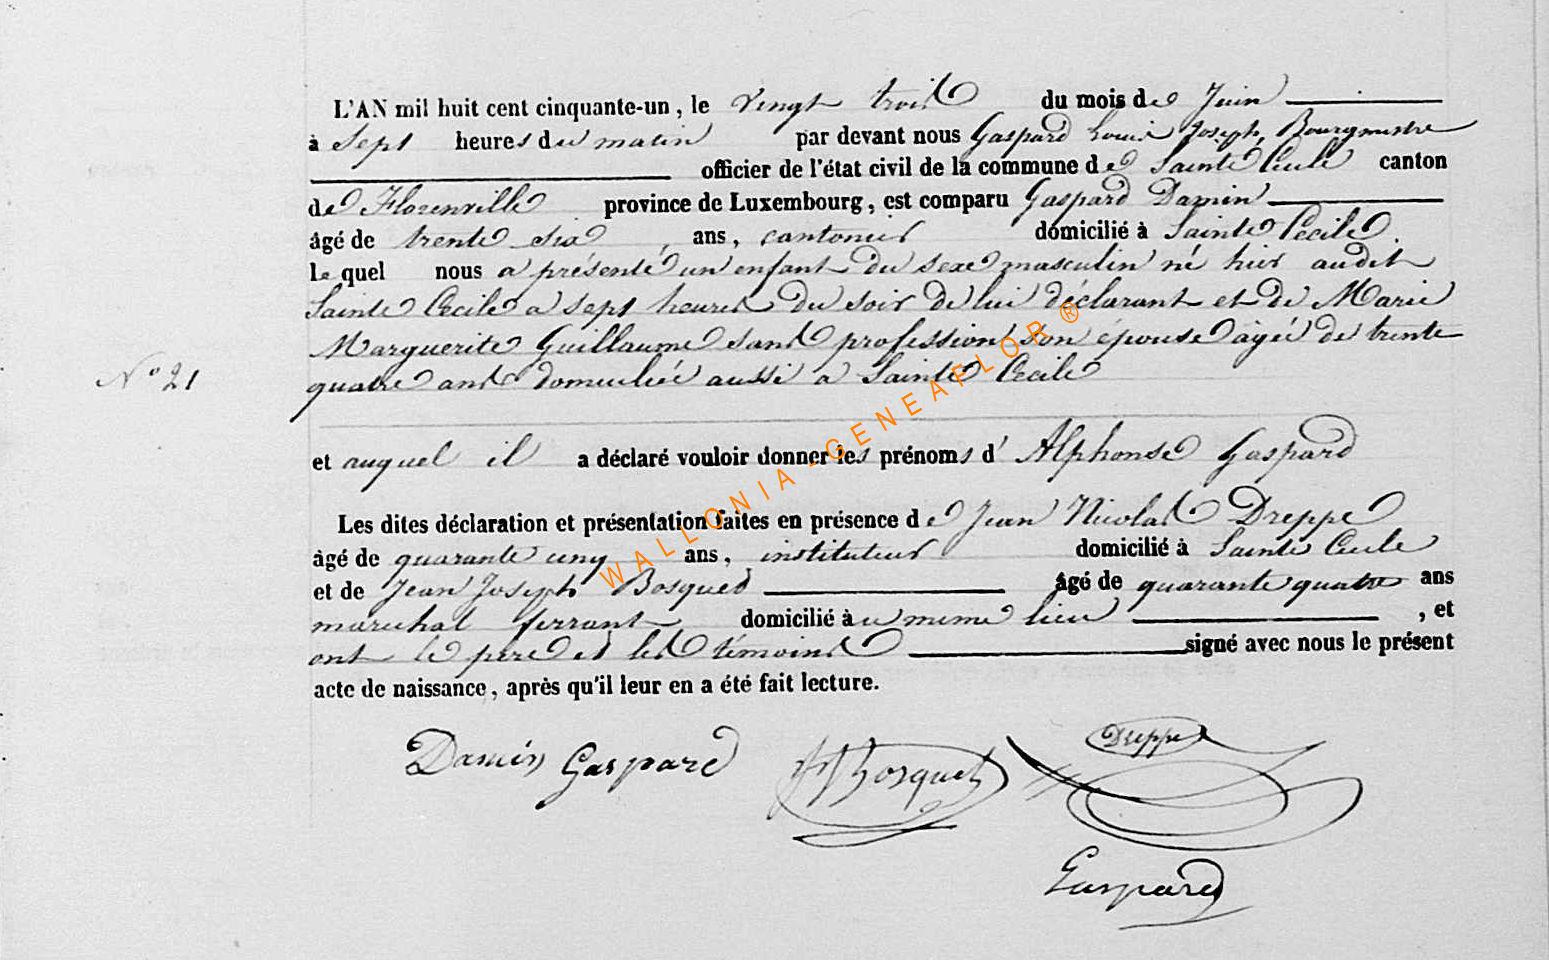 L'AN mil huit cent cinquante-un, le vingt trois du mois de Juin
à Sept heures du matin par devant nous Gaspard Louis Joseph, Bourgmestre
officier de l'état civil de la commune de Sainte Cecile canton
de Florenville province de Luxembourg, est comparu Gaspard Damin
âgé de trente six, ans, cantonier domicilié à Sainte Cecile.
le quel nous a présenté un enfant du sexe masculin né hier audit
Sainte Cecile a sept heures du soir de lui déclarant et de Marie
Marguerite Guillaume sans profession son épouse agée de trente
N° 21
quatre ans domiciliée aussi a Sainte Cecile
et auquel il a déclaré vouloir donner les prénoms d' Alphonse Gaspard
Les dites déclaration et présentation faites en présence de Jean Nicolas Dreppe
âgé de quarante cinq ans, instituteur domicilié à Sainte Cecile
et de Jean Joseph Bosqued âgé de quarante quatre ans
marechal ferrant domicilié à u meme lieu, et
ont le pere et les témoins signé avec nous le présent
acte de naissance, après qu'il leur en a été fait lecture.
Damin Gaspard
JJ Bosquet
Dreppe
Gaspard
WALLONIA-GENEAFLOR ®